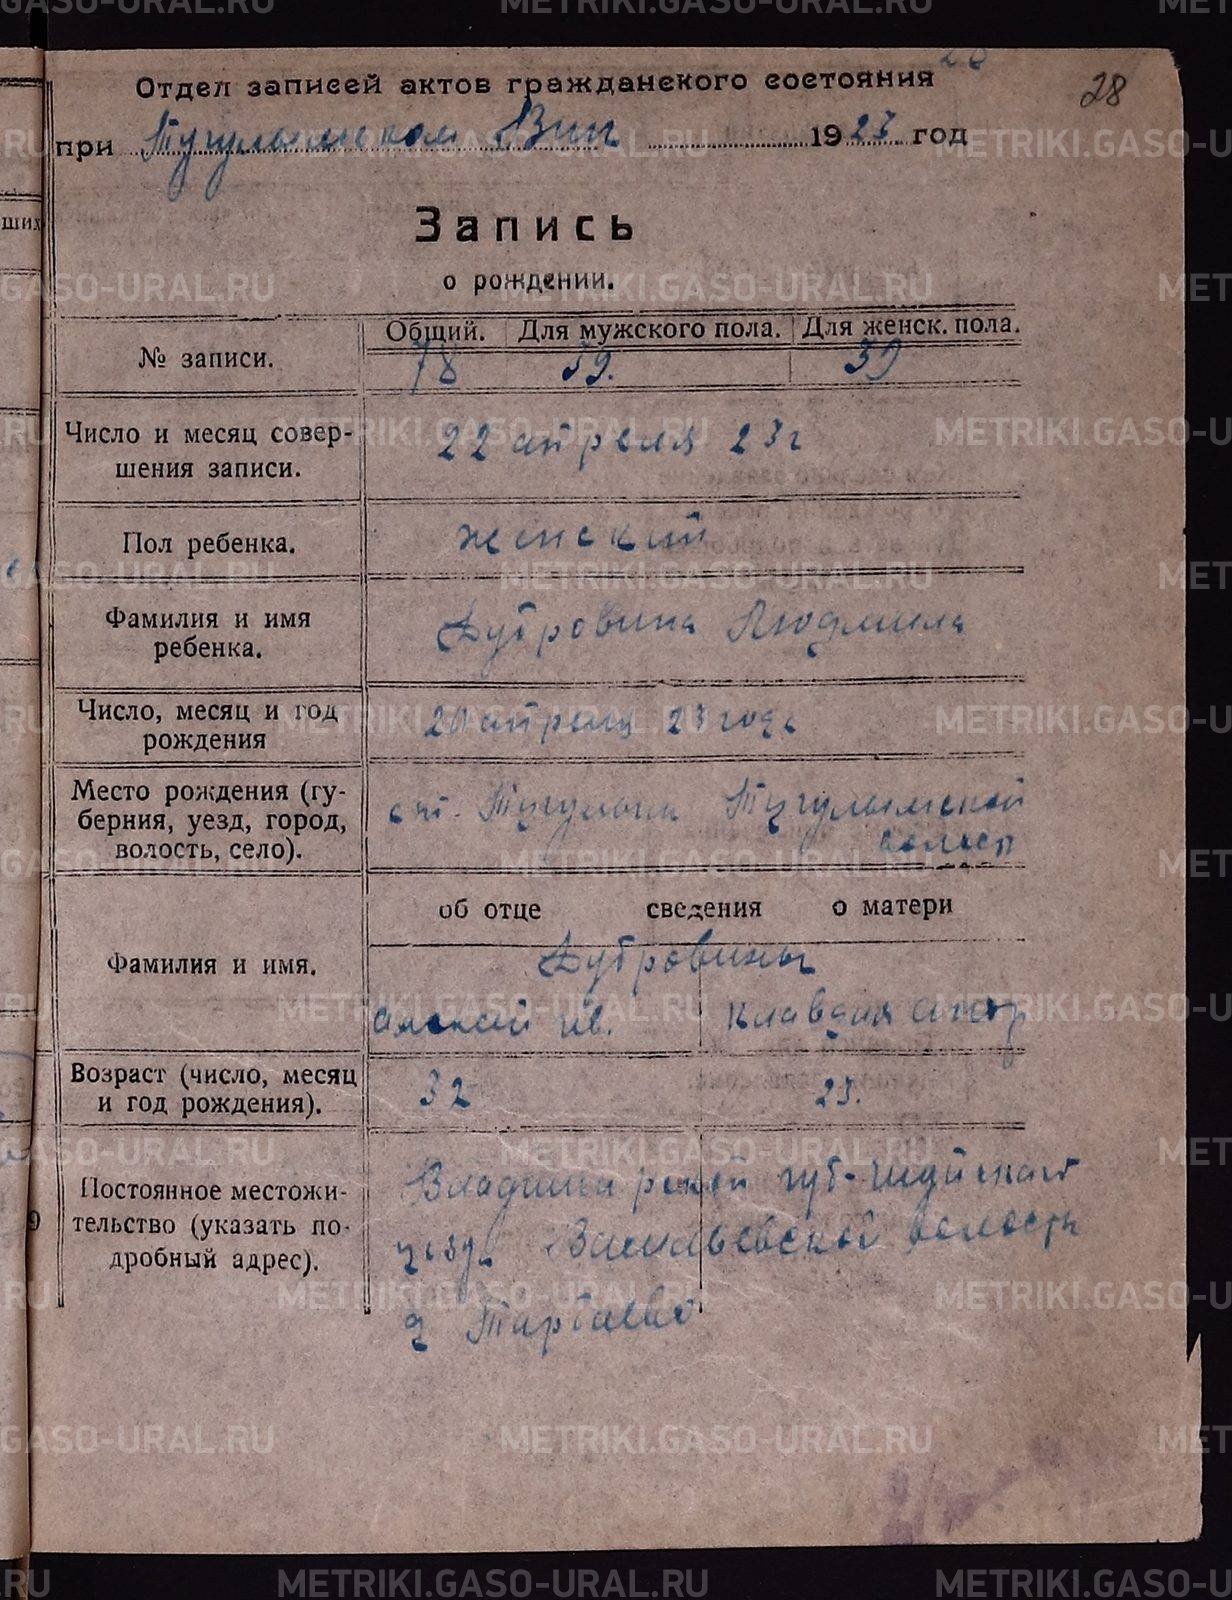 28
Отдел записей актов гражданского состояния
при Тугулымском Вик 1923 год
Запись
о рождении.
№ записи.
Общий. Для мужского пола. Для женск. пола.
78 39
Число и месяц совер-
шения записи.
22 апреля 23 г
Пол ребенка.
женский
Фамилия и имя
ребенка.
Дубровина Людмила
Число, месяц и год
рождения
20 апреля 23 года
Место рождения (гу-
берния, уезд, город,
волость, село).
ст. Тугулым Тугулымской
волост
об отце сведения о матери
Фамилия и имя.
Дубровины
Ив. Клавдия
Возраст (число, месяц
и год рождения).
32 23.
Постоянное местожи-
тельство (указать по-
дробный адрес).
Владимирской губ. Шуйского
уезда Васильевской волости
д
METRIKI.GASO-URAL.RU